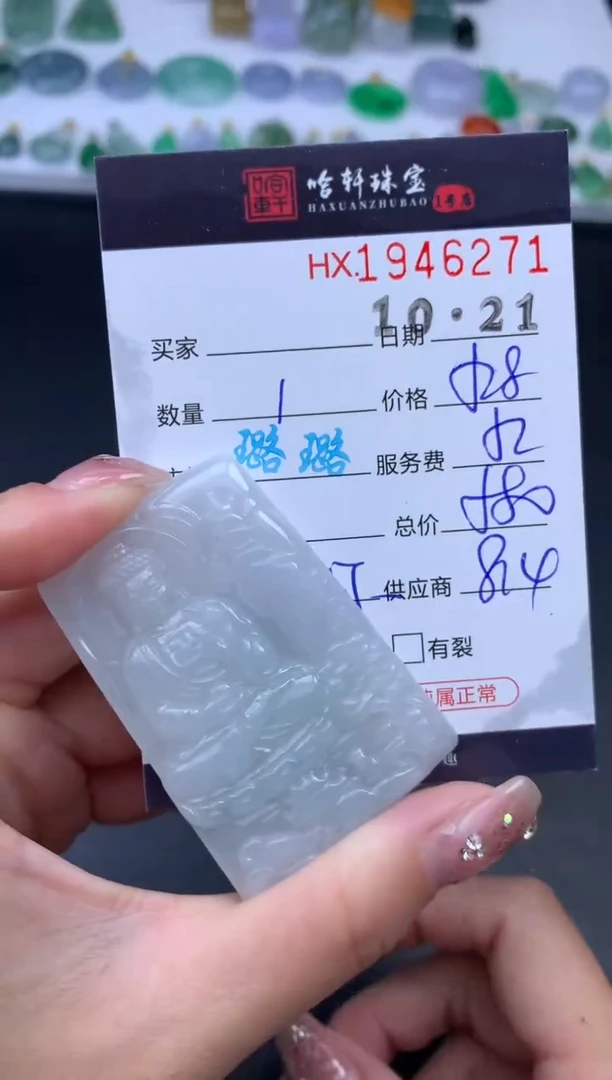 哈轩珠宝
HAXUANZHUBAO 1号店
HX.1946271
买家 日期 10·21
数量 1 价格
璐璐 服务费
总价
供应商 814
有裂
属正常